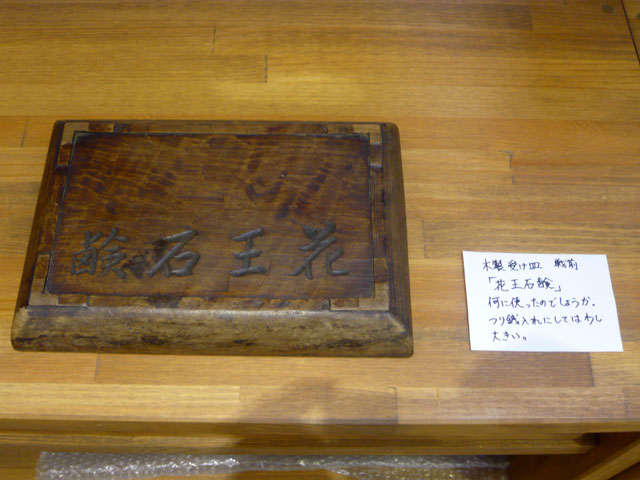 花王石鹸
木製受け皿 戦前
「花王石鹸」
何に使ったのでしょうか。
つり銭入れにしては少し
大きい。